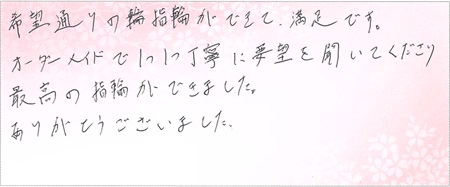 希望通りの輪指輪ができて、満足です。
オーダーメイドで1つ1つ丁寧に要望を聞いてくださり
最高の指輪ができました。
ありがとうございました。